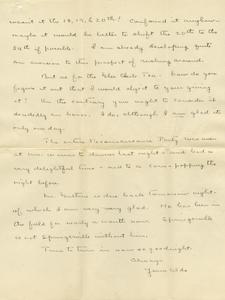 meant it the 18, 19, & 20th! Confound it anyhow -
maybe it would be better to shift the 20th to the
24th if possible. I am already developing quite
an aversion to this prospect of rushing around.
But as for the Tea. how do you
figure it out that I would object to your going
at! On the contrary you ought to consider it
decidedly an honor. I do, although I am glad it is
only one day.
The entire Reconnaissance Party was even
at here in to dinner last night & we had a
very delightful time - and to a corn-popping the
night before.
Mr. is due back tomorrow night -
of which I am very very glad. He has been in
the field for nearly a month now Springerville
is not Springerville without him.
Time to turn in now so goodnight.
Always
Yours